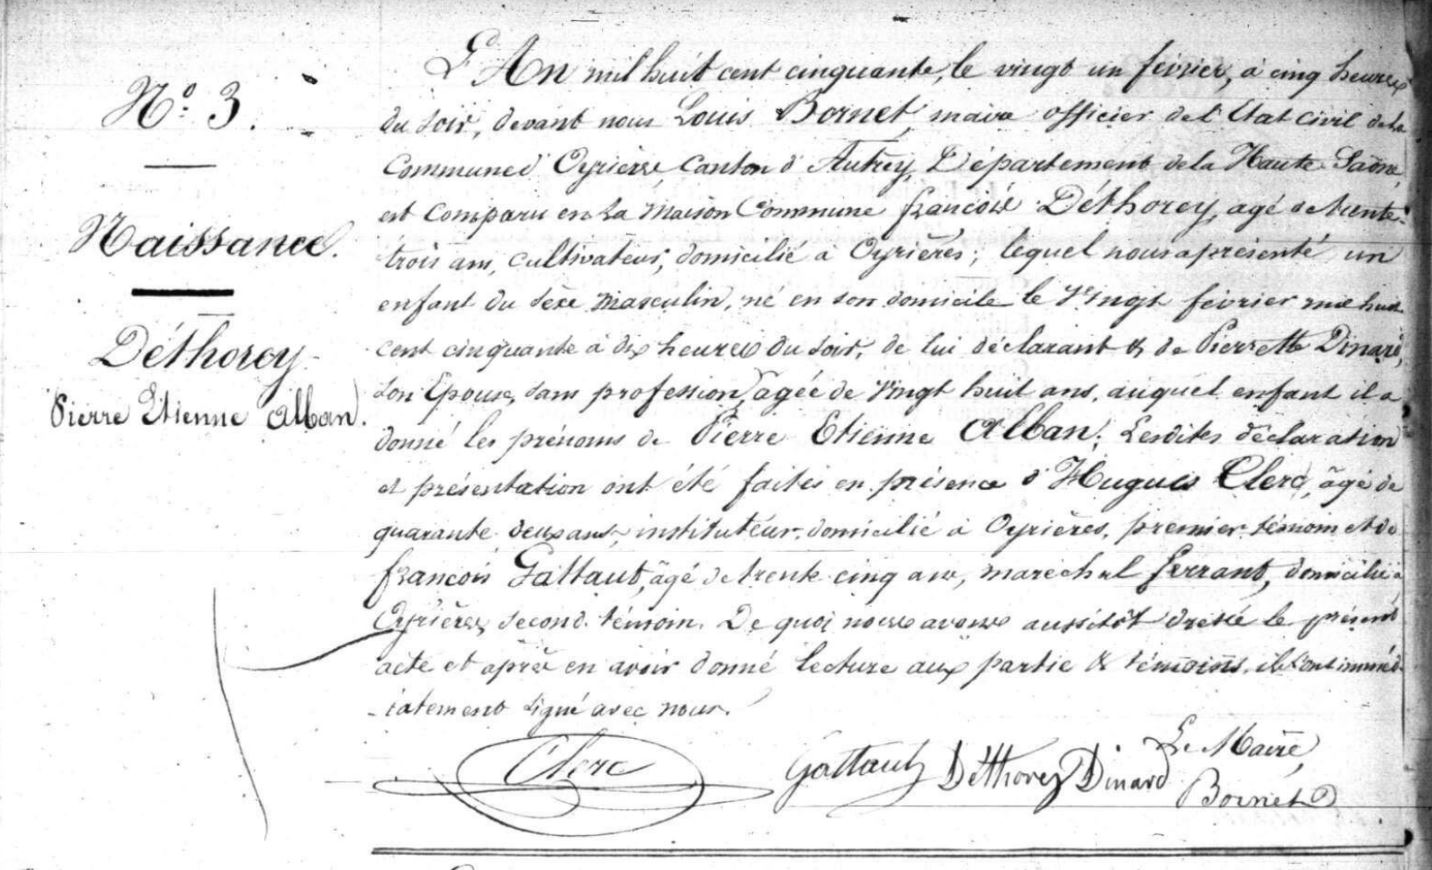 N.o 3.
Naissance.
Déthorey
Pierre Etienne Alban.
L'An mil huit cent cinquante, le vingt un février, à cinq heures
du soir, devant nous Louis Bornet, maire officier de l'Etat civil de la
Commune d'Oyrières Canton d'Autrey, Département de la Haute Saône,
est comparu en la maison Commune françois Déthorey, agé de trente-
trois ans, cultivateur, domicilié à Oyrières; lequel nous a présenté un
enfant du sèxe masculin, né en son domicile le vingt février mil huit
cent cinquante à dix heures du soir, de lui déclarant & de Pierrette Dinard,
son Epouse, sans profession, agée de vingt huit ans, auquel enfant il a
donné les prénoms de Pierre Etienne Alban; Lesdites déclaration
et présentation ont été faites en présence d'Hugues Clerc, âgé de
quarante deux ans, instituteur domicilié à Oyrières, premier témoin et de
françois Gattaut, âgé de trente cinq ans, marechal ferrant, domicilié à
Oyrières, second témoin. De quoi nous avons aussitôt dressé le présent
acte et après en avoir donné lecture aux partie & témoins, ils l'ont immédi-
-iatement signé avec nous.
Clerc Gattaut Déthorey Dinard Le Maire,
Bornet